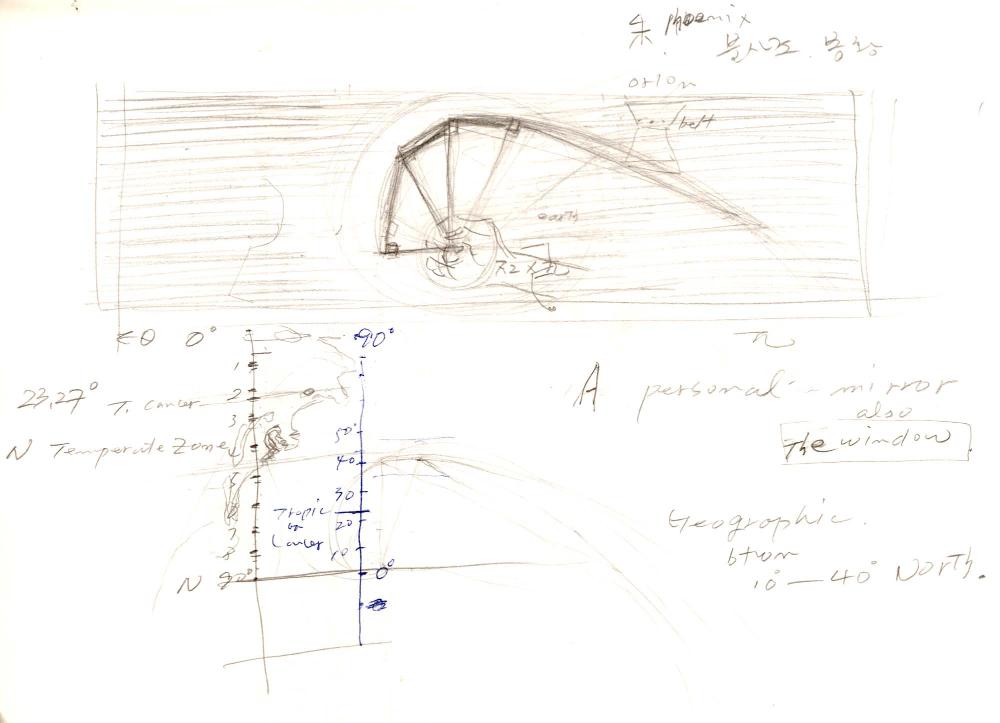 朱 phoenix
불사조. 봉황
orion
belt
earth
EQ 0° 90°
1
23,27° T. cancer 2
3
N Temperate Zone
50°
40
5
30
Tropic
on
Cancer
20
7
8
10
N 90° 0°
A personal - mirror
also
The window
Geographic.
btwn
10° — 40° North.